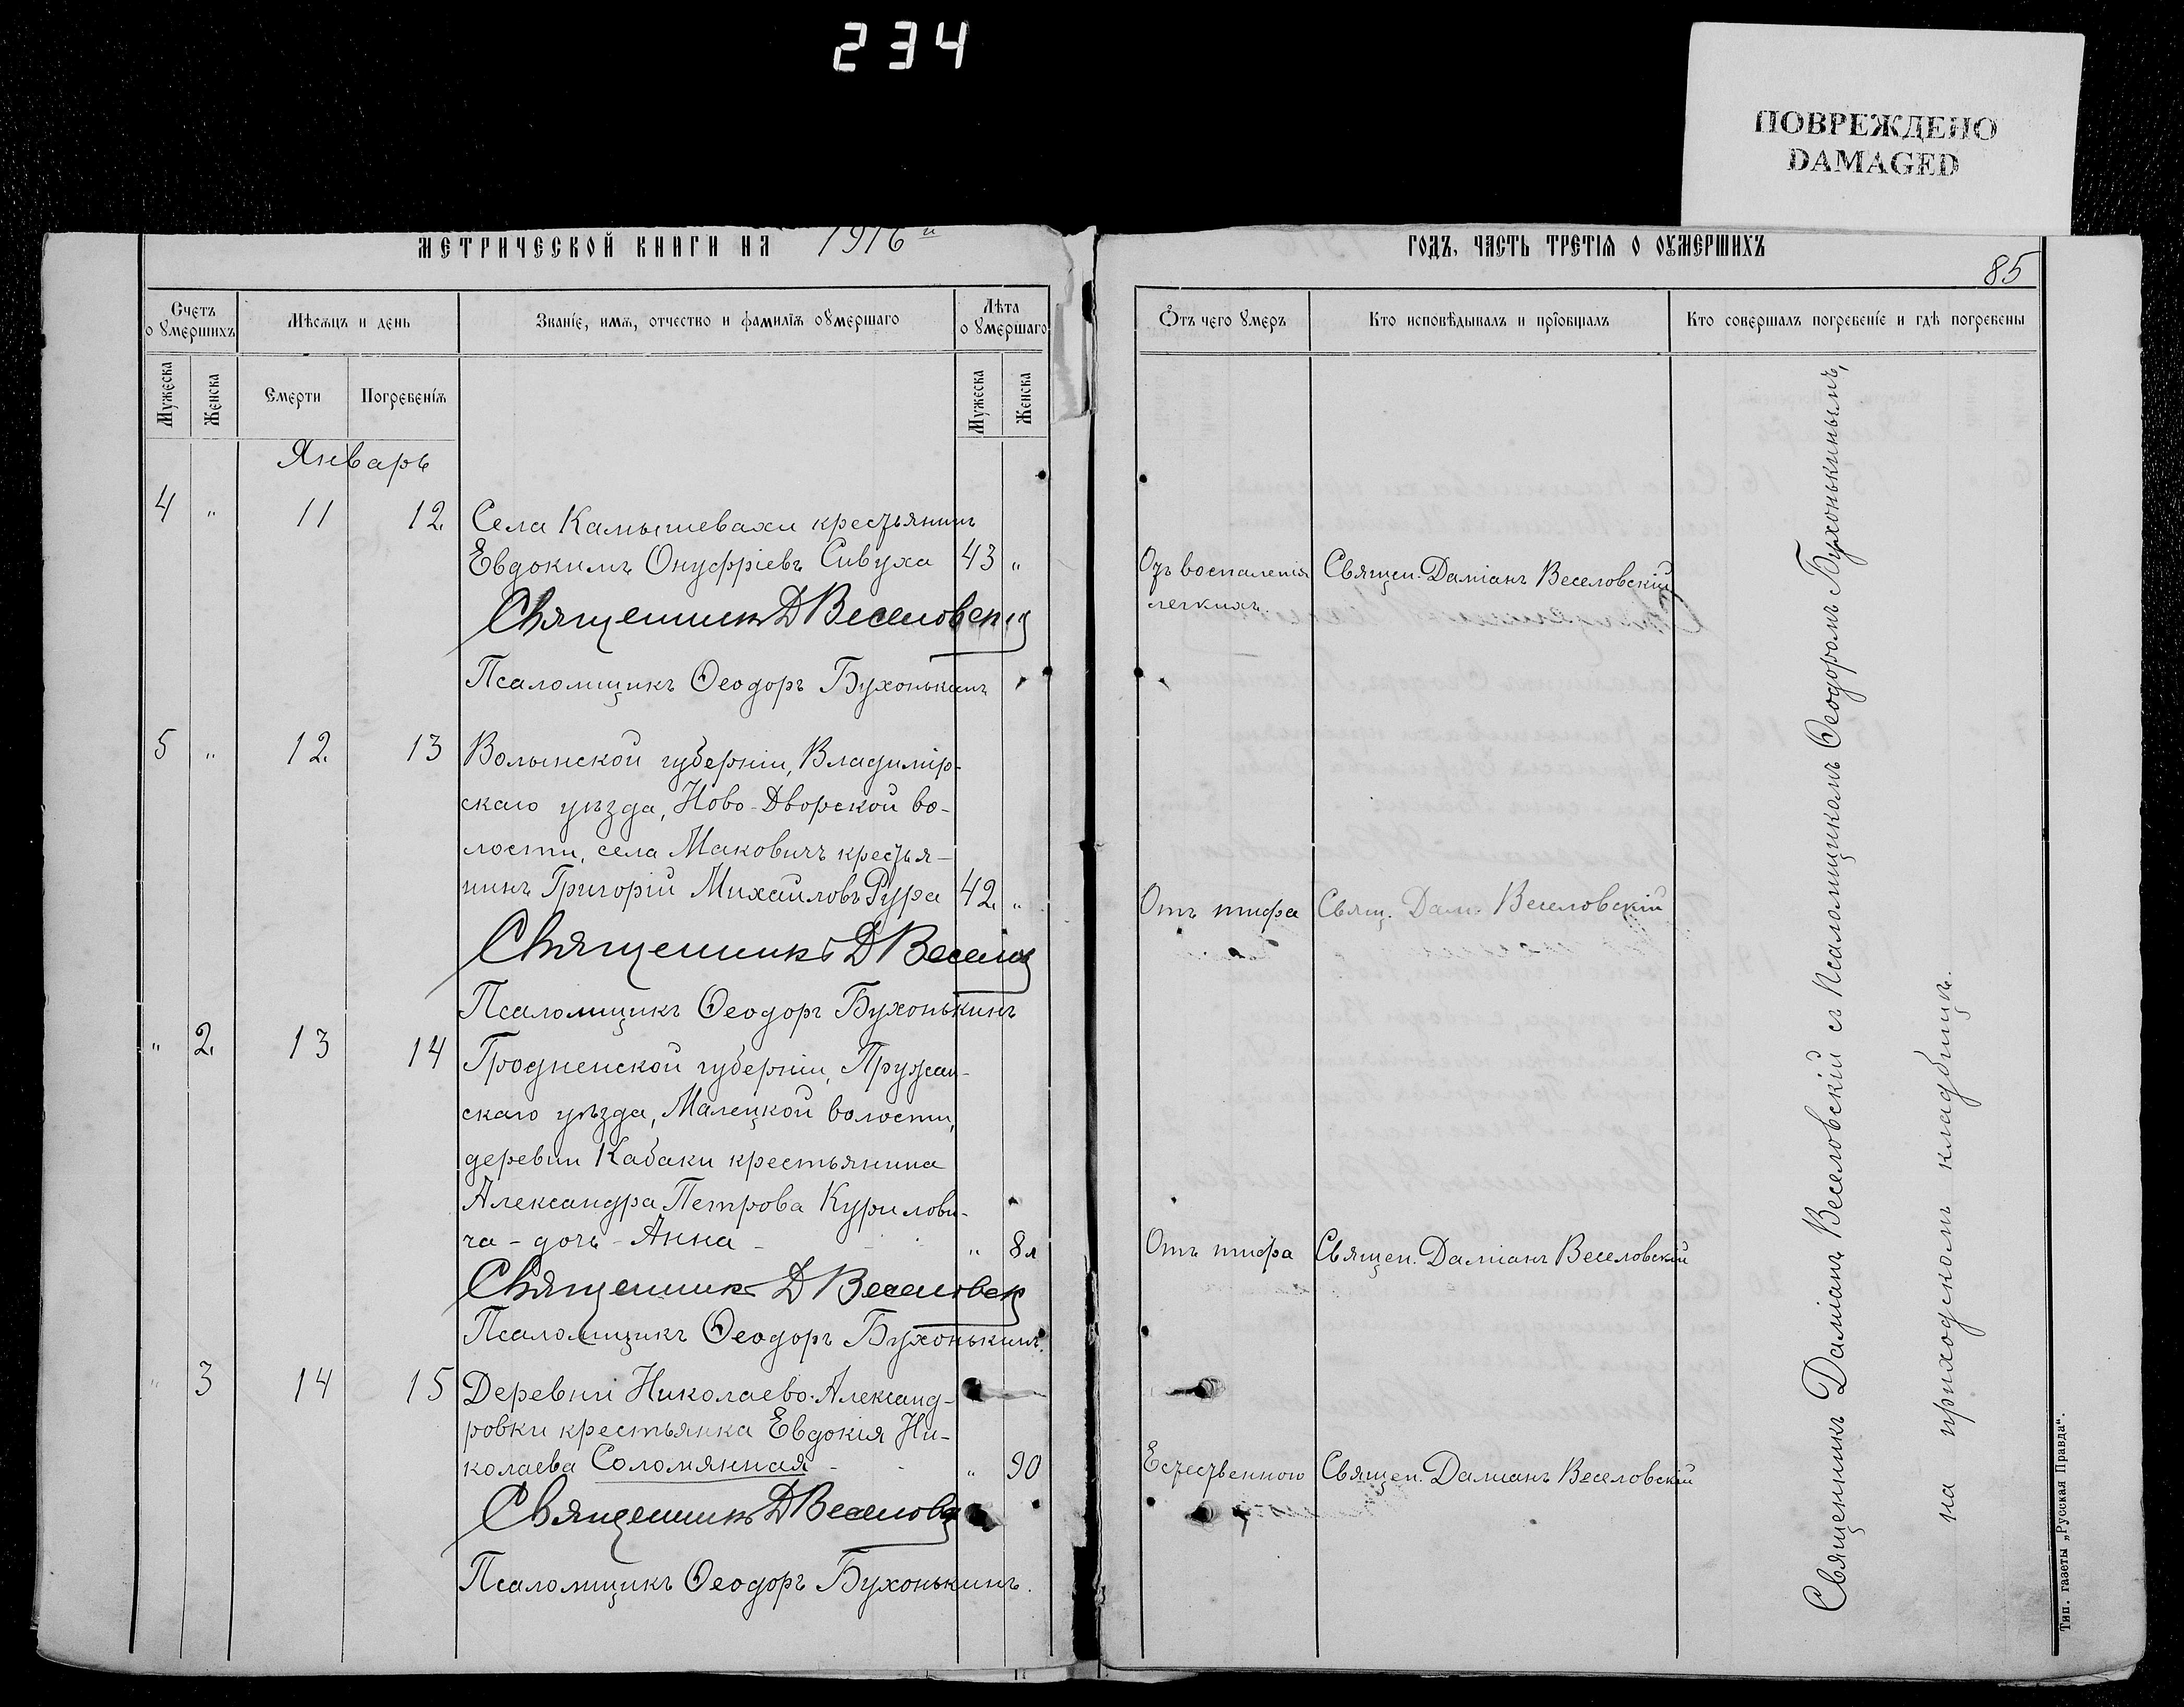 234
ПОВРЕЖДЕНО
DAMAGED
МЕТРИЧЕСКОЙ КНИГИ НА 1916 й
ГОДЪ, ЧАСТЬ ТРЕТІЯ О ОУМЕРШИХЪ
85
Счетъ о умершихъ
Мѣсяцъ и день
Званіе, имя, отчество и фамилія оумершаго
Лѣта оумершаго
Отъ чего умеръ
Кто исповѣдывалъ и пріобщалъ
Кто совершалъ погребеніе и гдѣ погребены
Мужеска
Женска
Смерти
Погребенія
Мужеска
Женска
Январь
4 " 11 12. Села Камышевахи крестьянинъ
Евдокимъ Онуфріевъ Сивуха 43 " Отъ воспаленія Священ. Даміанъ Веселовскій
легкихъ.
Священникъ Д Веселовскій
Псаломщикъ Ѳеодоръ Бухонькинъ
5 " 12. 13 Волынской губерніи, Владимір-
скаго уѣзда, Ново-Дворской во-
лости, села Маковичъ крестья-
нинъ Григорій Михаиловъ Рура 42. " Отъ тифа Свящ. Дам. Веселовскій
Священникъ Д Веселов
Псаломщикъ Ѳеодоръ Бухонькинъ
" 2. 13 14 Гродненской губерніи, Пружан-
скаго уѣзда, Малецкой волости,
деревни Кабаки крестьянина
Александра Петрова Курилови-
ча - дочь - Анна - " 8 л Отъ тифа Священ. Даміанъ Веселовскій
Священникъ Д Веселовск
Псаломщикъ Ѳеодоръ Бухонькинъ.
" 3 14 15 Деревни Николаево-Александ-
ровки крестьянка Евдокія Ни-
колаева Соломянная - " 90 Естественною Священ. Даміанъ Веселовскій
Священникъ Д Веселов
Псаломщикъ Ѳеодоръ Бухонькинъ.
Священникъ Даміанъ Веселовскій съ Псаломщикомъ Ѳеодоромъ Бухонькинымъ,
на приходскомъ кладбищѣ.
Тип. газеты „Русская Правда“.